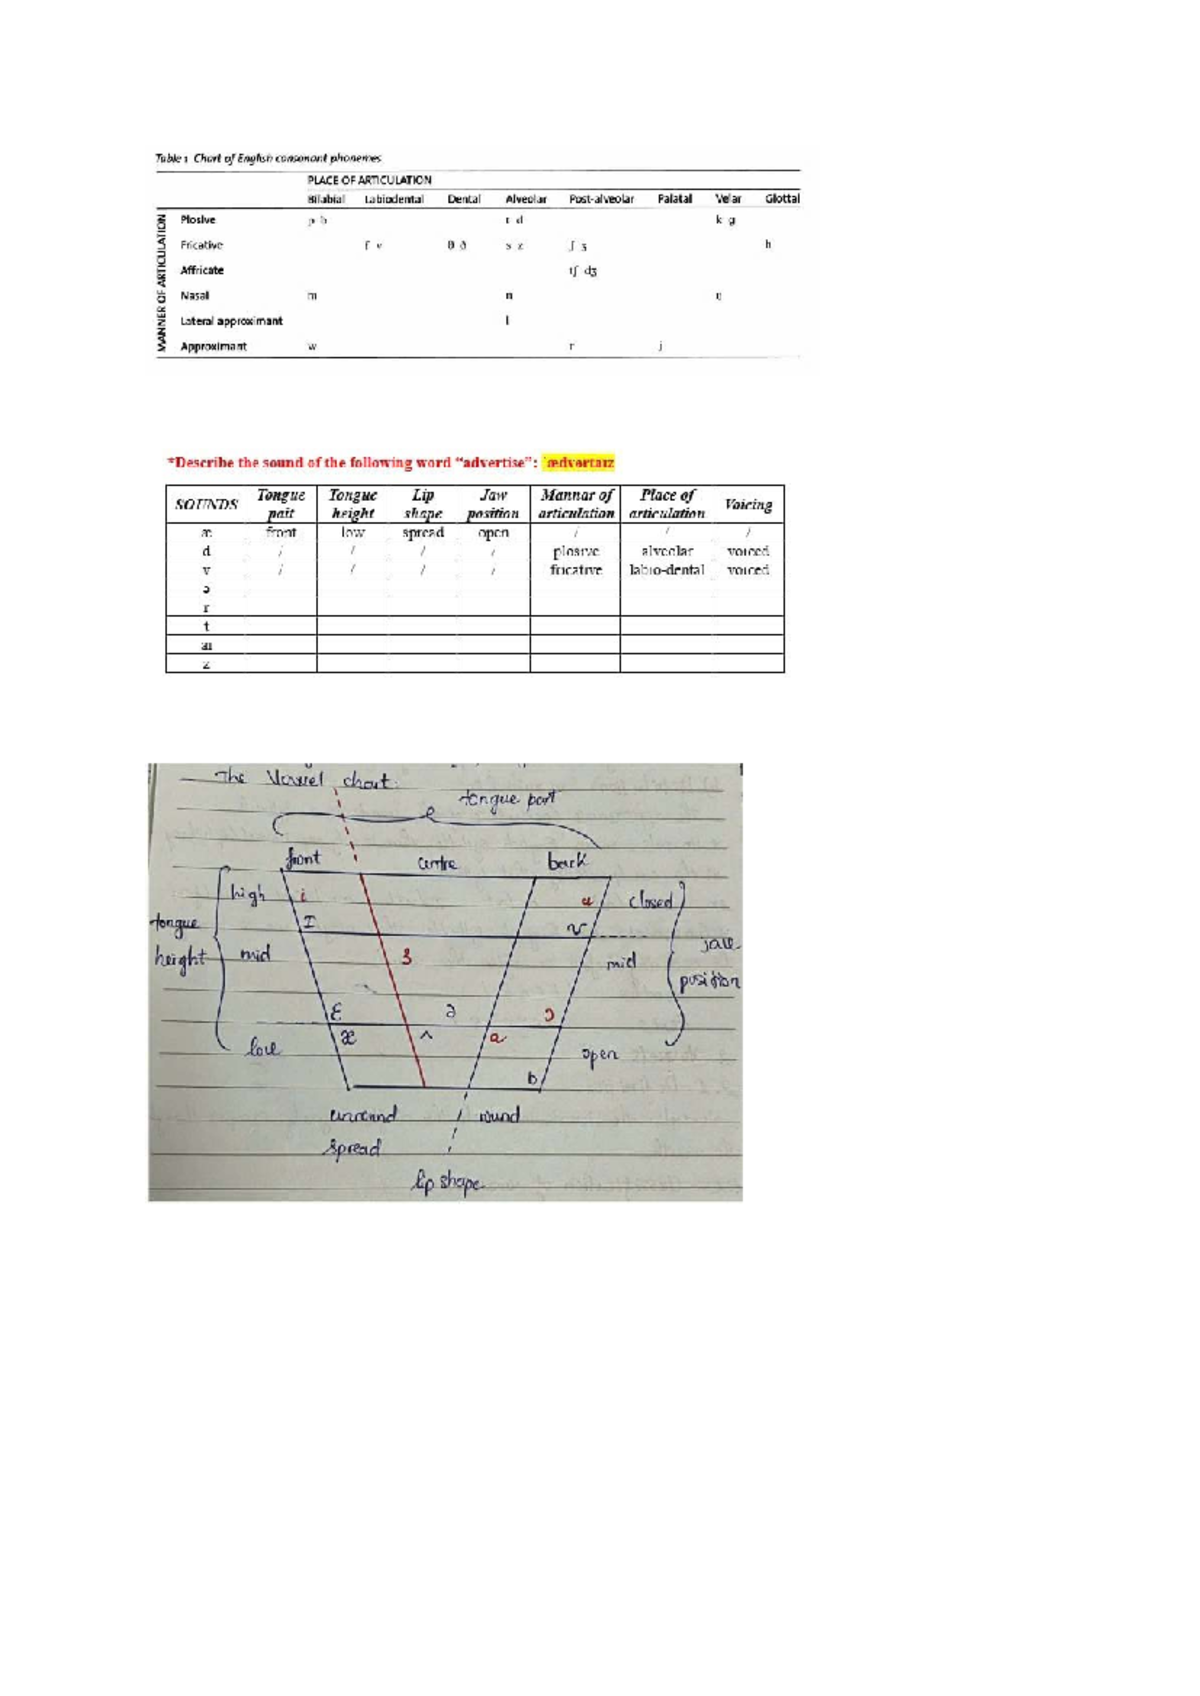 Table 1 Chart of English consonant phonemes
PLACE OF ARTICULATION
Bilabial Labiodental Dental Alveolar Post-alveolar Palatal Velar Glottal
MANNER OF ARTICULATION
Plosive p b t d k g
Fricative f v θ ð s z ʃ ʒ h
Affricate tʃ dʒ
Nasal m n ŋ
Lateral approximant l
Approximant w r j
*Describe the sound of the following word “advertise”: ˈædvərtaɪz
SOUNDS Tongue part Tongue height Lip shape Jaw position Mannar of articulation Place of articulation Voicing
æ front low spread open / / /
d / / / / plosive alveolar voiced
v / / / / fricative labio-dental voiced
ə
r
t
aɪ
z
The Vowel chart:
tongue part
front centre back
high i u closed
tongue height
I ʊ
jaw position
mid ɜ mid
ɛ ə ɔ
low æ ʌ a open
ɒ
unround round
spread
lip shape